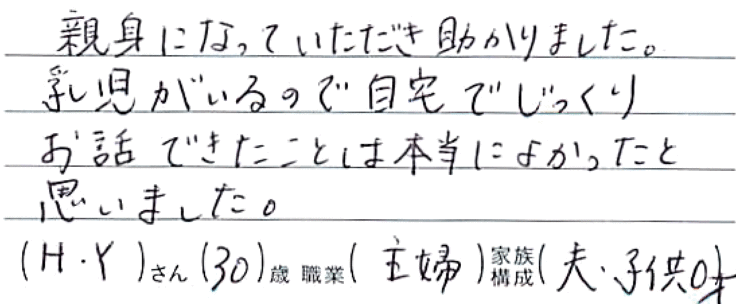 親身になっていただき助かりました。
乳児がいるので自宅でじっくり
お話できたことは本当によかったと
思いました。
(H・Y)さん(30)歳 職業(主婦)家族構成(夫・子供0才